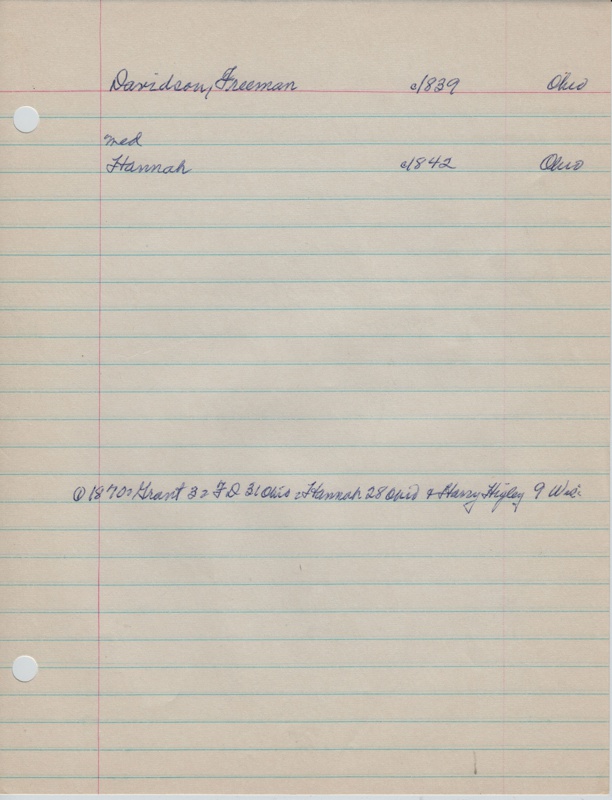 Davidson, Freeman c1839 Ohio
med
Hannah c1842 Ohio
① 1870: Grant 3: F D 31 Ohio, Hannah 28 Ohio & Harry Higley 9 Wis.